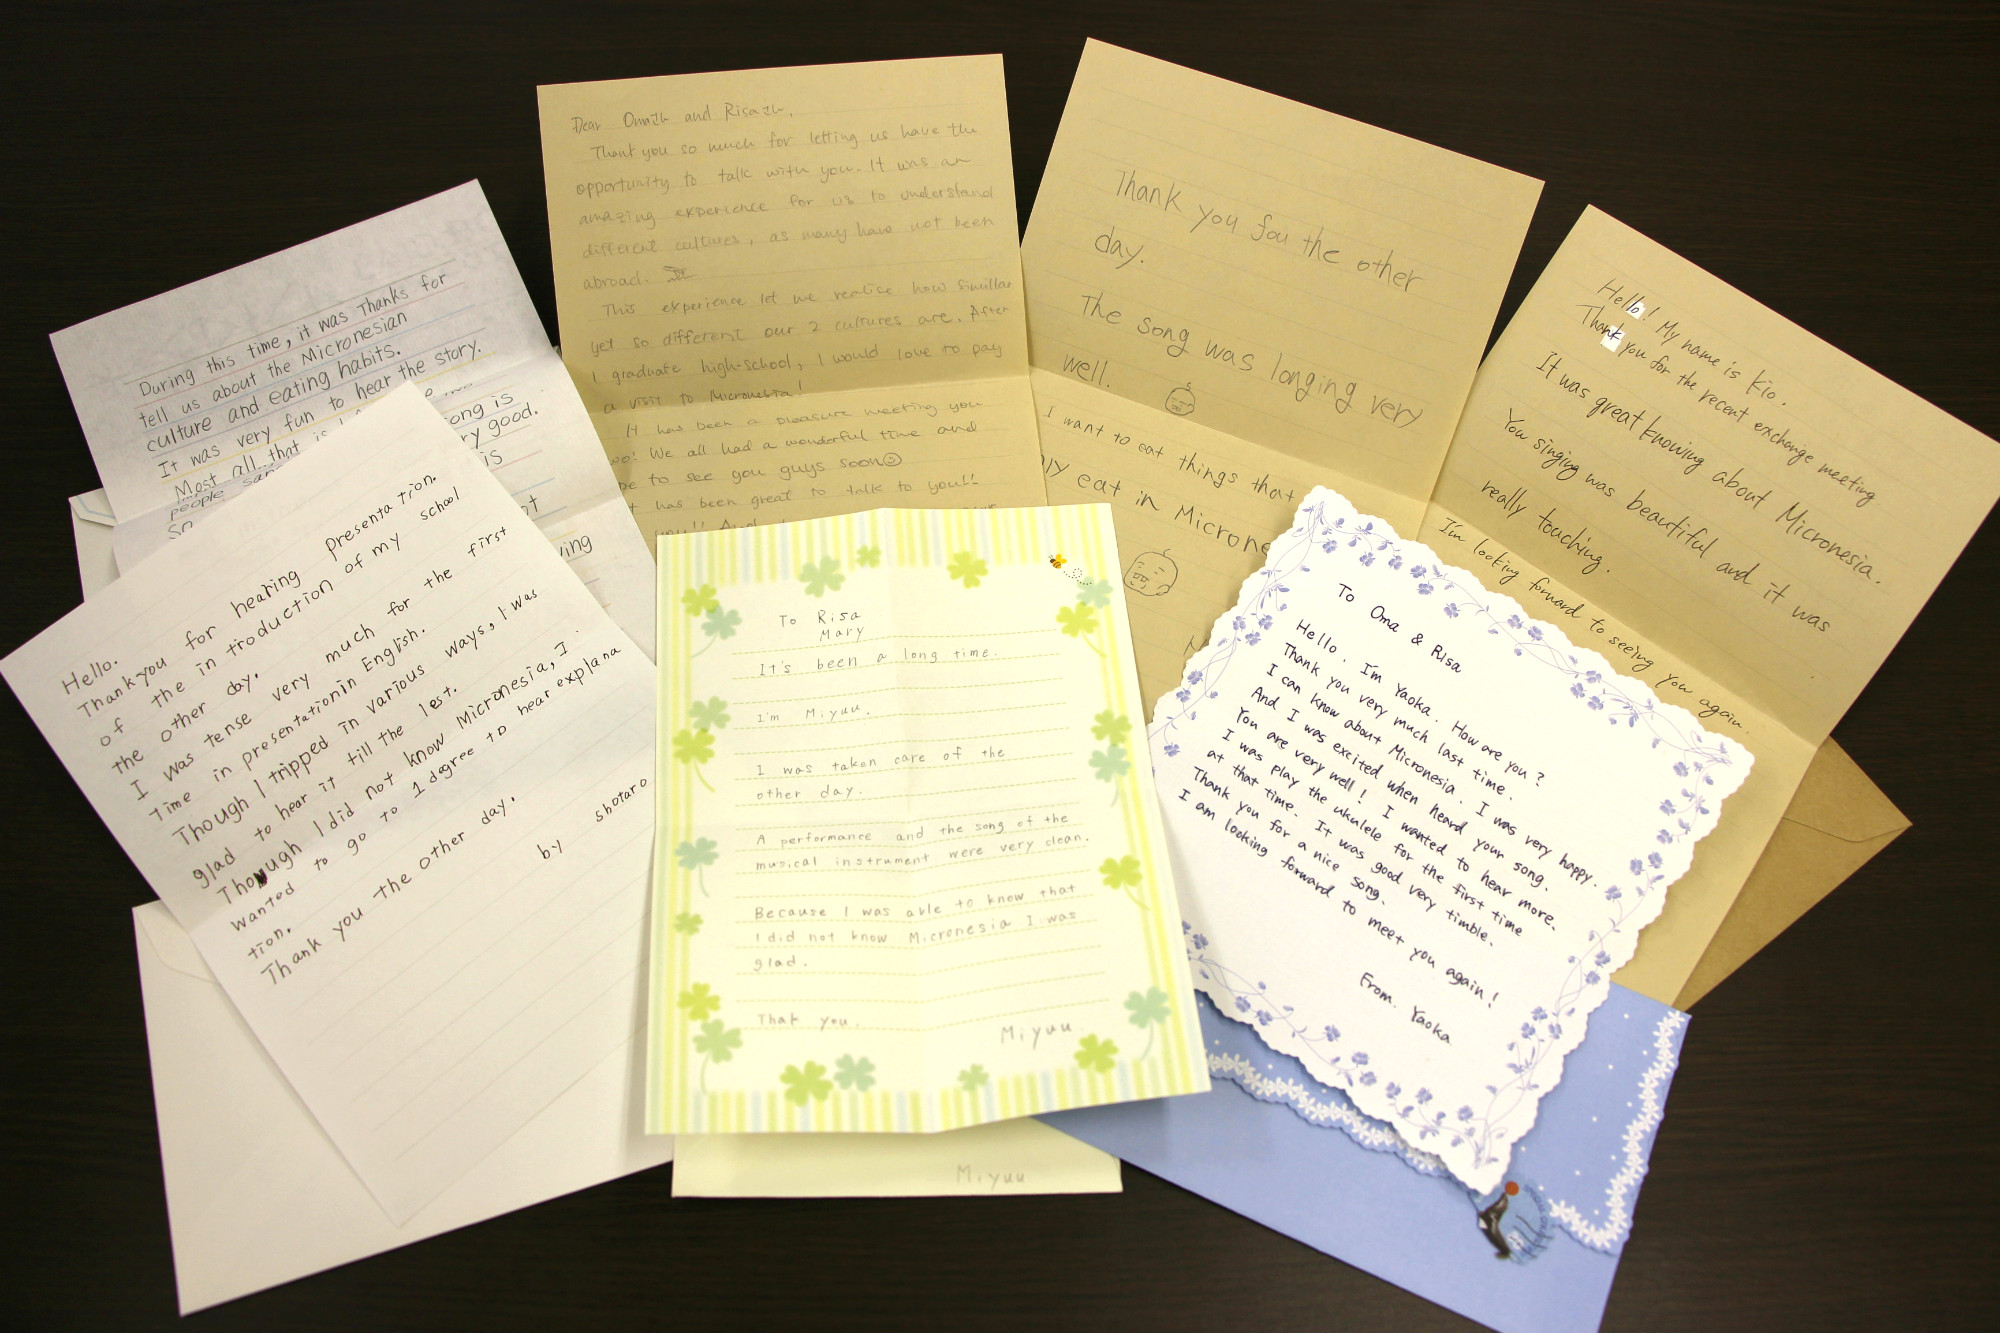 During this time, it was Thanks for
tell us about the Micronesian
culture and eating habits.
It was very fun to hear the story.
Most all that is
people
ong is
ry good.
is
ot
ving
Hello.
Thankyou for hearing presentation.
of the introduction of my school
the other day.
I was tense very much for the first
time in presentationin English.
Though I tripped in various ways, I was
glad to hear it till the lest.
Though I did not know Micronesia, I
wanted to go to 1 degree to hear explana
tion.
Thank you the other day.
by shotaro
Dear Omaさん and Risaさん,
Thank you so much for letting us have the
opportunity to talk with you. It was an
amazing experience for us to understand
different cultures, as many have not been
abroad.
This experience let we realice how simillar
yet so different our 2 cultures are. After
I graduate high-school, I would love to pay
a visit to Micronesia!
It has been a pleasure meeting you
wo! We all had a wonderful time and
pe to see you guys soon
t has been great to talk to you!!
you!! And
Thank you fou the other
day.
The song was longing very
well.
I want to eat things that
ly eat in Microne
Hello! My name is Kio.
Thank you for the recent exchange meeting
It was great knowing about Micronesia.
You singing was beautiful and it was
really touching.
I'm looking forward to seeing you again.
To Risa
Mary
It's been a long time.
I'm Miyuu.
I was taken care of the
other day.
A performance and the song of the
musical instrument were very clean.
Because I was able to know that
I did not know Micronesia I was
glad.
Thak you.
Miyuu
Miyuu
To Oma & Risa
Hello. I'm Yaoka. How are you?
Thank you very much last time.
I can know about Micronesia. I was very happy.
And I was excited when heard your song.
You are very well! I wanted to hear more.
I was play the ukulele for the first time
at that time. It was good very timble.
Thank you for a nice song.
I am looking forward to meet you again!
From. Yaoka